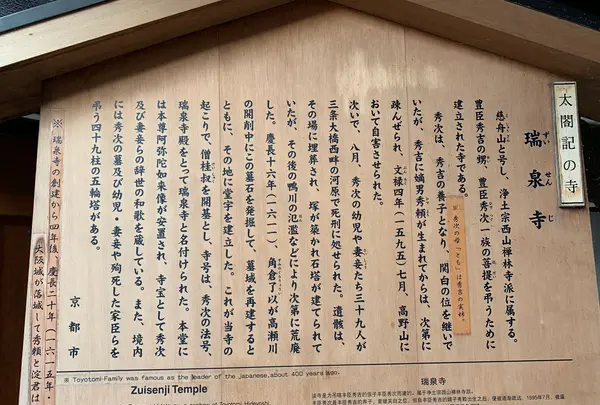 太閤記の寺
瑞泉寺
ずいせんじ
慈舟山と号し、浄土宗西山禅林寺派に属する。
豊臣秀吉の甥、豊臣秀次一族の菩提を弔うために
建立された寺である。
秀次は、秀吉の養子となり、関白の位を継いで
※ 秀次の母「とも」は秀吉の実姉。
いたが、秀吉に嫡男秀頼が生まれてからは、次第に
疎んぜられ、文禄四年(一五九五)七月、高野山に
おいて自害させられた。
次いで、八月、秀次の幼児や妻妾たち三十九人が
三条大橋西畔の河原で死刑に処せられた。遺骸は、
その場に埋葬され、塚が築かれ石塔が建てられて
いたが、その後の鴨川の氾濫などにより次第に荒廃
した。慶長十六年(一六一一)、角倉了以が高瀬川
の開削中にこの墓石を発掘して、墓域を再建すると
ともに、その地に堂宇を建立した。これが当寺の
起こりで、僧桂叔を開基とし、寺号は、秀次の法号、
瑞泉寺殿をとって瑞泉寺と名付けられた。本堂に
は本尊阿弥陀如来像が安置され、寺宝として秀次
及び妻妾らの辞世の和歌を蔵している。また、境内
には秀次の墓及び幼児・妻妾や殉死した家臣らを
弔う四十九柱の五輪塔がある。
京都市
※ 瑞泉寺の創建から四年後、慶長二十年(一六一五年・
大坂城が落城して秀頼と淀君は
※ Toyotomi-Family was famous as the leader of the japanese, about 400 years ago.
Zuisenji Temple
瑞泉寺